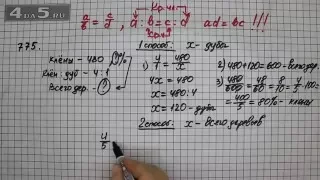 4a5.RU
Кр.чл.
a/b = c/d , a : b = c : d ad = bc !!!
775.
Клёны - 480
Клён : дуб - 4 : 1
Всего дер. - ?
1 способ: x - дубы
1) 4/1 = 480/x
4x = 480·1
x = 480 : 4
x = 120 - дубы
2) 480+120=600 - всего дер.
3) 480/600 = 48/60 = 8/10 = 4/5 · 100
= 400/5 = 80% - клёны
2 способ: x - всего деревьев
4/5